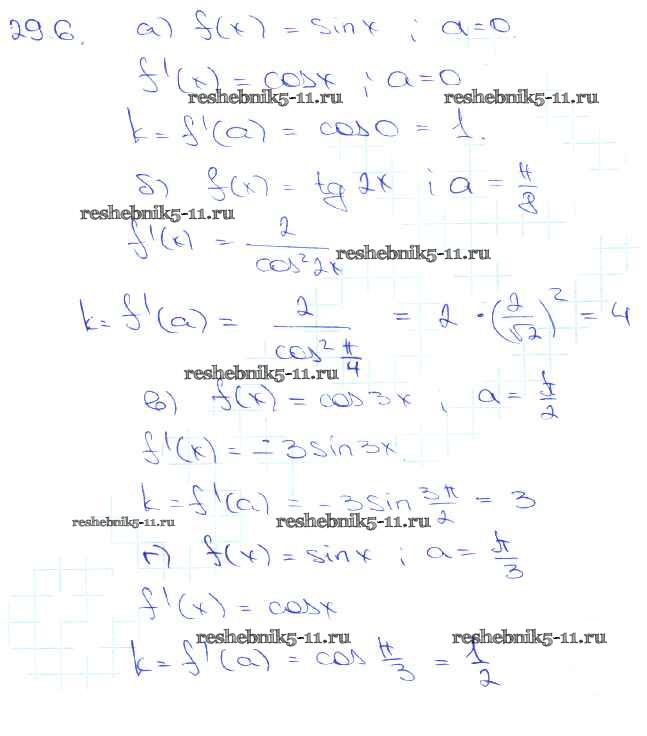 29.6. а) f(x) = sinx ; a=0.
f'(x) = cosx ; a=0
reshebnik5-11.ru reshebnik5-11.ru
k = f'(a) = cos0 = 1.
б) f(x) = tg 2x ; a = π/8
reshebnik5-11.ru
f'(x) = 2/cos²2x
reshebnik5-11.ru
k = f'(a) = 2/cos² π/4 = 2 · (2/√2)² = 4
reshebnik5-11.ru
в) f(x) = cos3x ; a = π/2
f'(x) = -3sin3x
k = f'(a) = -3sin 3π/2 = 3
reshebnik5-11.ru reshebnik5-11.ru
г) f(x) = sinx ; a = π/3
f'(x) = cosx
reshebnik5-11.ru reshebnik5-11.ru
k = f'(a) = cos π/3 = 1/2